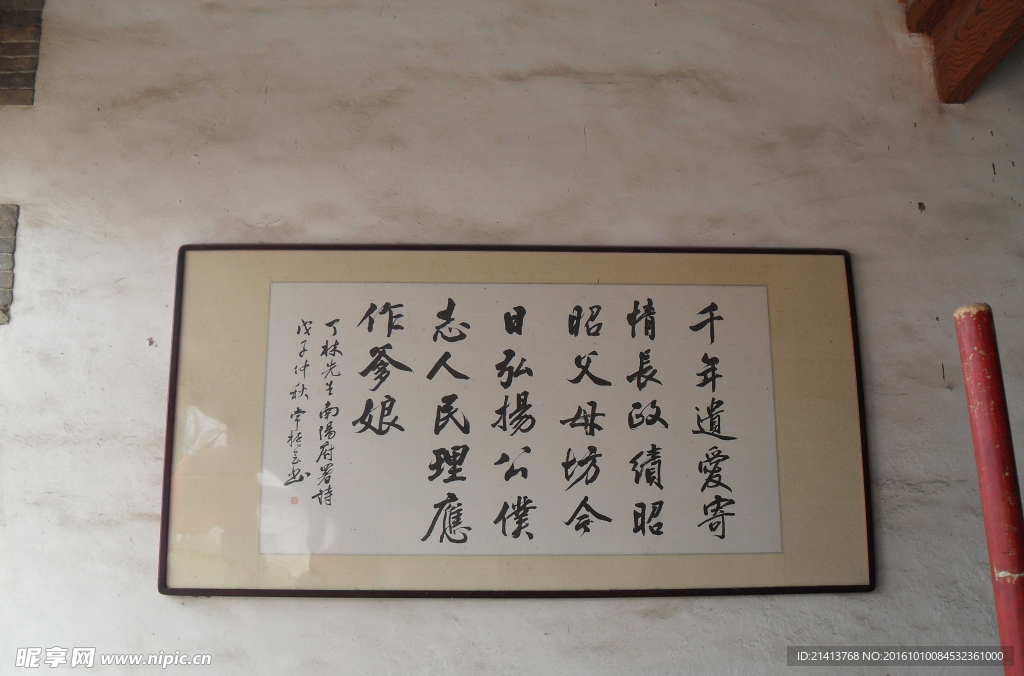 千年遺愛寄
情長政績昭
昭父母坊今
日弘揚公僕
志人民理應
作爹娘
丁林先生南陽府署詩
戊子仲秋常振會书
昵享网 www.nipic.cn
ID:21413768 NO:20161010084532361000